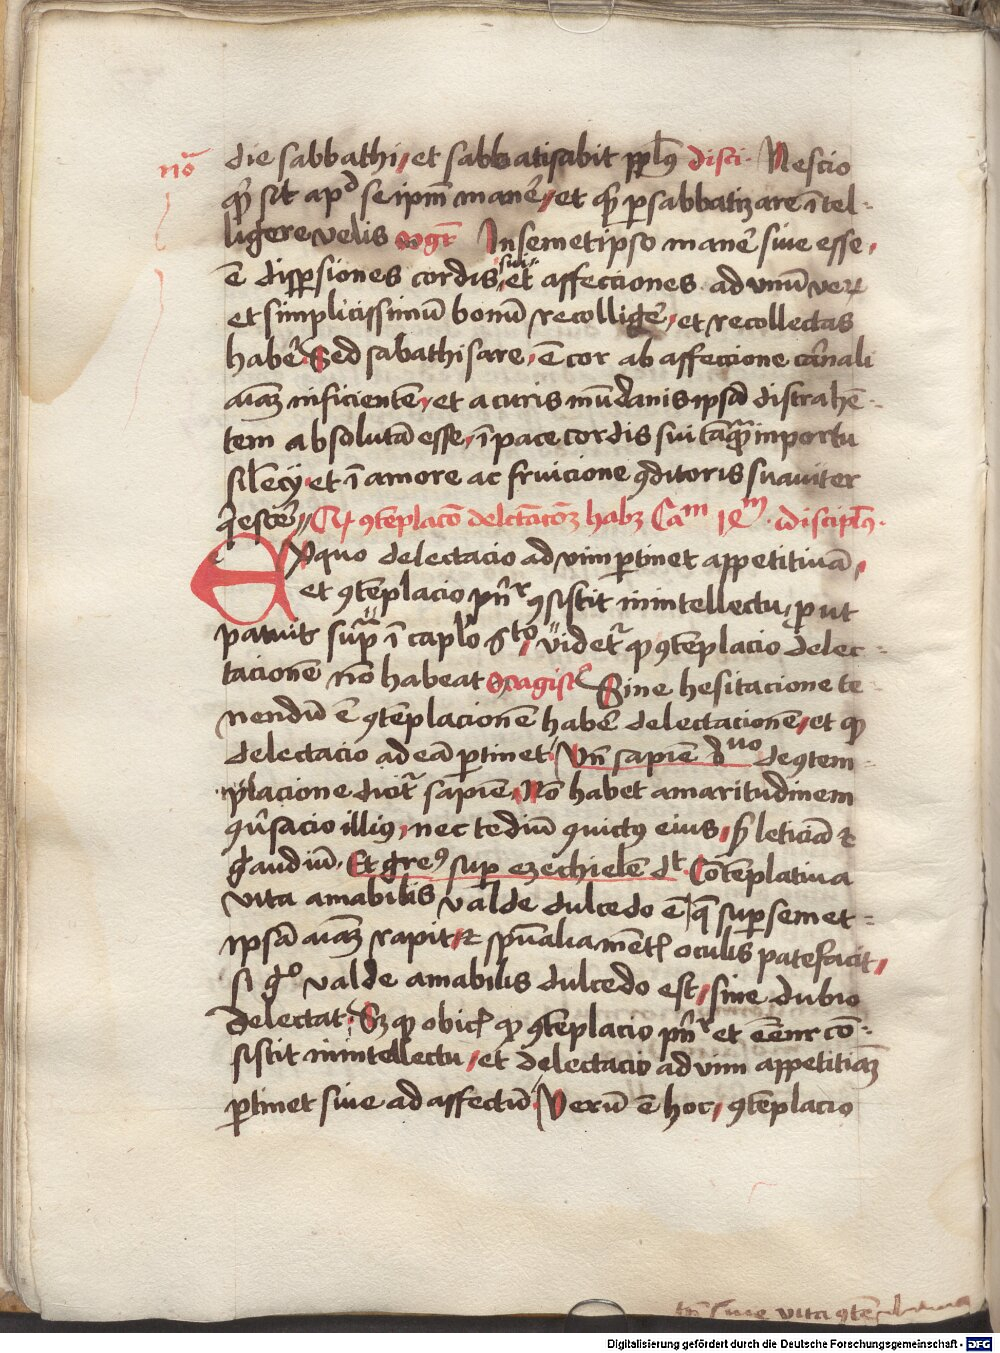 nō
die sabbathi, et sabbatisabit pplꝰ disci. Nescio
qđ sit apd seipm manē, et qđ psabbatizare ītel-
ligere velis Mgr̄ In semetipso manē siue esse,
ē dispsiones cordis sui et affecciones ad vnū veꝝ
et simplicissimū bonū recolligē, et recollectas
habē. Sed sabathisare, ē cor ab affeccione carnali
aīaꝫ inficientē, et a curis mūdanis ipsā distrahē-
tem absolutā esse, ī pace cordis sui tāꝗ in portu
silēcij et ī amore ac fruicione ꝯditoris suauiter
ꝗescē, Qꝫ ꝯtēplacō delctacōꝫ habꝫ Cam iem. discipls.
Exquo delectacio ad vim ptinet appetitiuā,
et ꝯtēplacio pn̄r ꝯsistit in intellectu, put
patuit supͣ ī caplo gto, videtr ꝙ ꝯtēplacio delec-
tacionē nō habeat Magistr Sine hesitacione te-
nendū ē ꝯtēplacionē habē delectacionē, et ꝙ
delectacio ad eā ptinet. Vn̄ sapiē 8uo de ꝯtem-
placione dicitr sapiē, Nō habet amaritudinem
ꝯūsacio illiꝰ, nec tediū ꝯuictꝰ eius, ꝫ leticiā ⁊
gaudiū. Et greꝰ sup ezechielē dt. Cōtēplatiua
vita amabilis valde dulcedo ē, q̄ sup semet-
ipsā aīaꝫ rapit, ⁊ spūalia mētꝭ oculis patefacit,
si gͦ valde amabilis dulcedo est, sine dubio
delectat. Sꝫ ꝙ obicꝭ ꝙ ꝯtēplacio pn̄r et eēnr cō-
sistit in intellectu, et delectacio ad vim appetitiāꝫ
ptinet siue ad affectū. Verū ē hoc, ꝯtēplacio
Digitalisierung gefördert durch die Deutsche Forschungsgemeinschaft - DFG